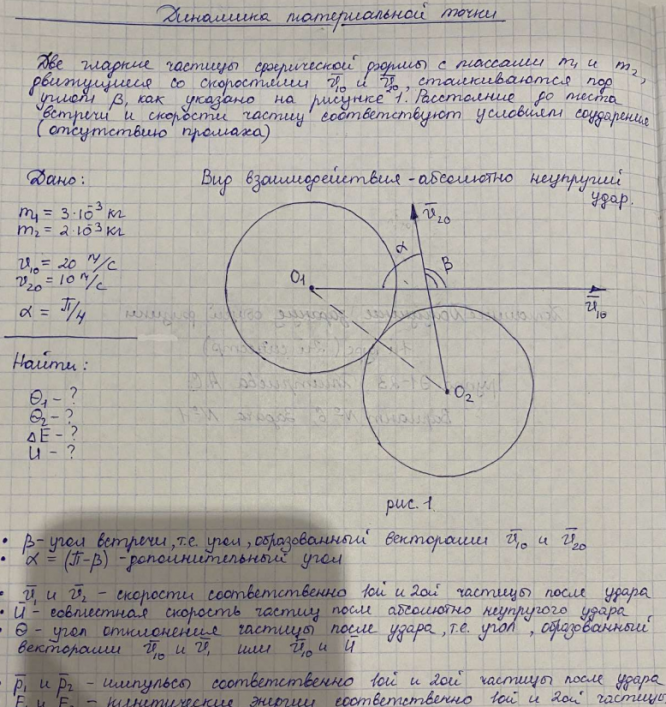 Динамика материальной точки
Две гладкие частицы сферической формы с массами m₁ и m₂,
движущиеся со скоростями v̄₁₀ и v̄₂₀, сталкиваются под
углом β, как указано на рисунке 1. Расстояние до места
встречи и скорости частиц соответствуют условиям соударения
(отсутствию промаха)
Дано:
Вид взаимодействия - абсолютно неупругий
удар.
m₁ = 3·10⁻³ кг
m₂ = 2·10⁻³ кг
v₁₀ = 20 м/с
v₂₀ = 10 м/с
α = π/4
Найти:
θ₁ - ?
θ₂ - ?
ΔE - ?
U - ?
v̄₂₀
α
β
O₁
v̄₁₀
O₂
рис. 1
• β - угол встречи, т.е. угол, образованный векторами v̄₁₀ и v̄₂₀
• α = (π-β) - дополнительный угол
• v̄₁ и v̄₂ - скорости соответственно 1ой и 2ой частицы после удара
• U - совместная скорость частиц после абсолютно неупругого удара
• θ - угол отклонения частицы после удара, т.е. угол, образованный
векторами v̄₁₀ и v̄₁ или v̄₁₀ и ū
• p̄₁ и p̄₂ - импульсы соответственно 1ой и 2ой частицы после удара
E₁ и E₂ - кинетические энергии соответственно 1ой и 2ой частицы